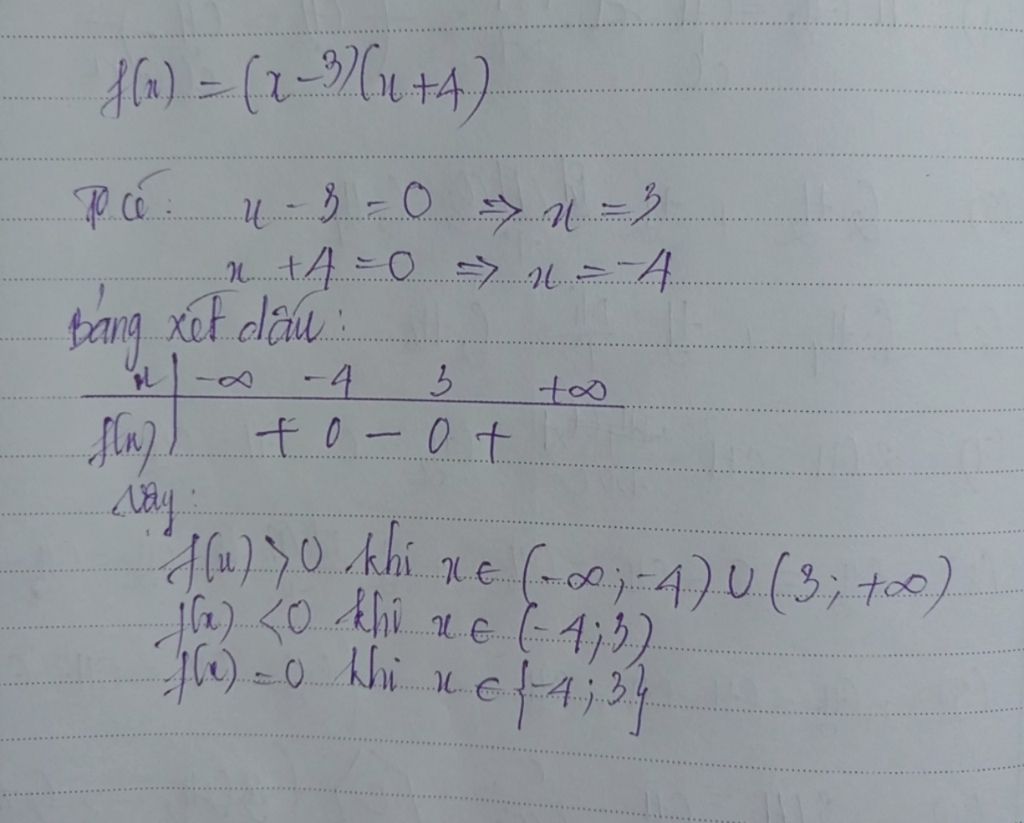 f(x) = (x-3)(x+4)
Ta có: x - 3 = 0 ⇒ x = 3
x + 4 = 0 ⇒ x = -4
Bảng xét dấu:
x | -∞ -4 3 +∞
f(x) | + 0 - 0 +
Vậy:
f(x) > 0 khi x ∈ (-∞; -4) ∪ (3; +∞)
f(x) < 0 khi x ∈ (-4; 3)
f(x) = 0 khi x ∈ {-4; 3}